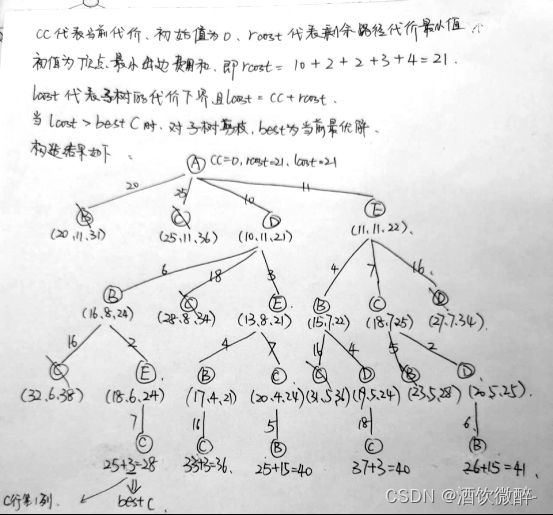 CC代表当前代价、初始值为0、rcost代表剩余路径代价最小值
初值为顶点最小出边费用和、即rcost = 10+2+2+3+4=21.
lcost代表子树的代价下界且lcost = CC+rcost.
当lcost>bestC时、对子树剪枝,best为当前最优解.
构造结果如下
A CC=0, rcost=21, lcost=21
20 25 10 11
B C D E
(20,11,31) (25,11,36) (10,11,21) (11,11,22).
6 18 3 4 7 16
B C E B C D
(16,8,24) (28,8,34) (13,8,21) (15,7,22) (18,7,25) (27,7,34).
16 2 4 7 16 4 5 2
C E B C C D B D
(32,6,38) (18,6,24) (17,4,21) (20,4,24) (31,5,36) (19,5,24) (23,5,28) (20,5,25).
7 16 5 18 6
C C B C B
25+3=28 33+3=36. 25+15=40 37+3=40 26+15=41.
C行第1列. bestC
CSDN @酒饮微醉